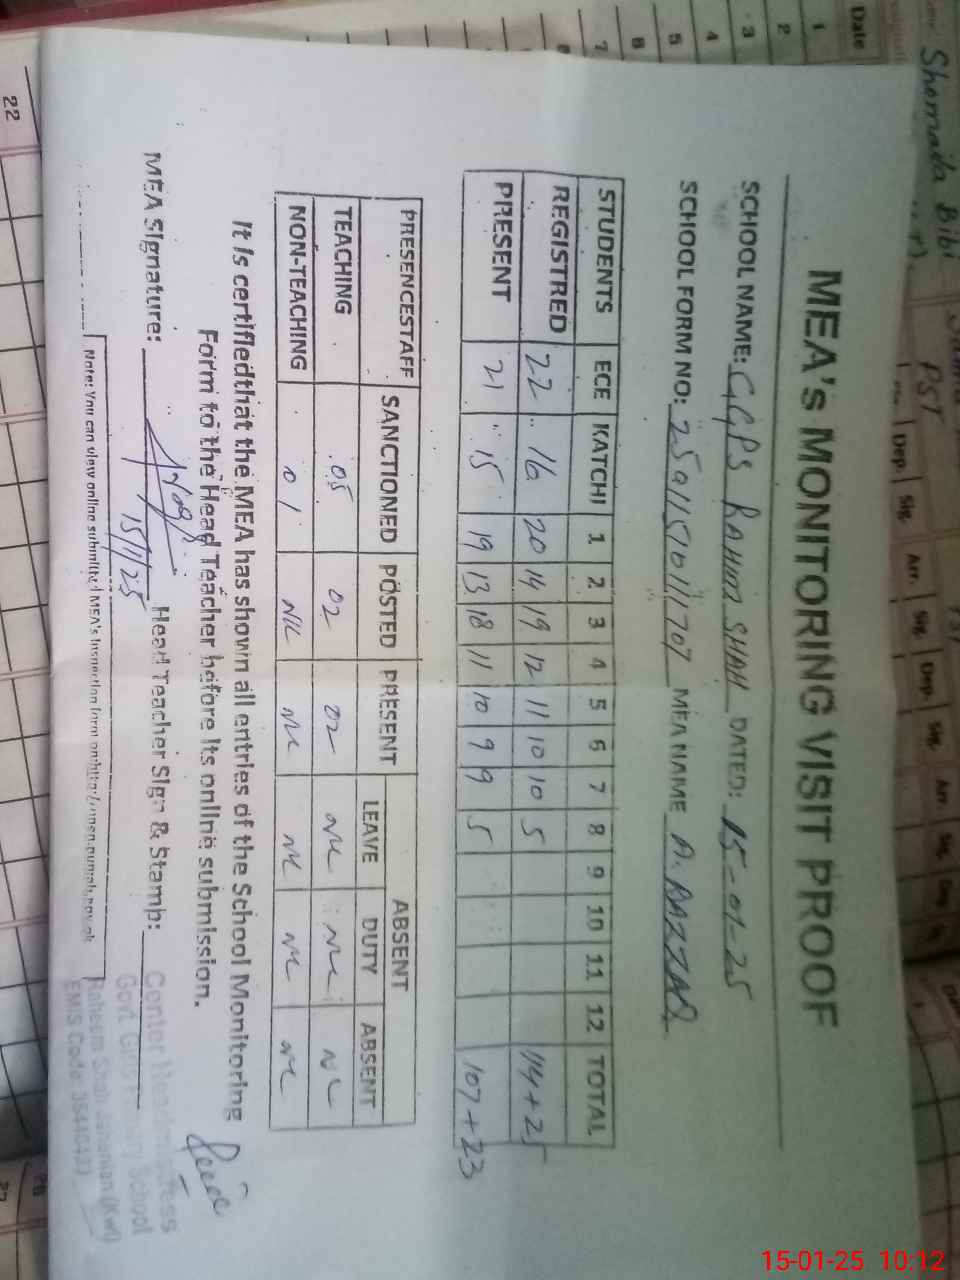 MEA's MONITORING VISIT PROOF
SCHOOL NAME: GGPS RAHIM SHAH DATED: 15-01-25
SCHOOL FORM NO: MEA NAME A. RAZZAQ
STUDENTS ECE KATCHI 1 2 3 4 5 6 7 8 9 10 11 12 TOTAL
REGISTRED 22 16 20 14 19 12 11 10 10 5 114+25
PRESENT 21 15 19 13 18 11 10 9 9 5 107+23
PRESENCESTAFF SANCTIONED POSTED PRESENT ABSENT
LEAVE DUTY ABSENT
TEACHING 05 02 02 NIL NIL NIL
NON-TEACHING 01 NIL NIL NIL NIL NIL
It is certifiedthat the MEA has shown all entries of the School Monitoring
Form to the Head Teacher before its online submission.
MEA Signature: Head Teacher Sign & Stamp:
15/1/25
Note: You can view online submitted MEA's Inspection form on
Center Headmistress
Govt. Girls Primary School
Raheem Shah Jahanian (Kwl)
EMIS Code
Date
1
2
3
4
5
6
7
22
Shomaila Bibi
PST
Dep. Sig. Arr. Sig. Dep. Sig. Arr. Sig.
15-01-25 10:12